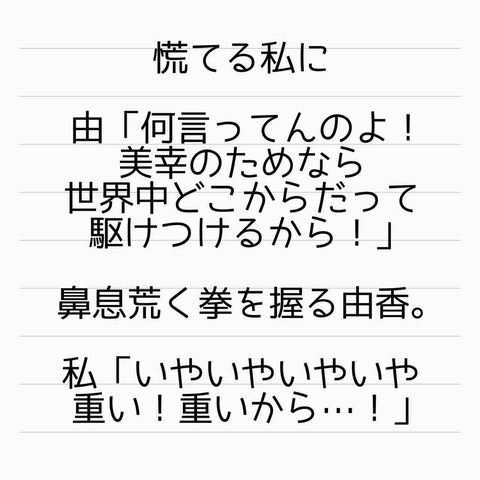 慌てる私に
由「何言ってんのよ!
美幸のためなら
世界中どこからだって
駆けつけるから!」
鼻息荒く拳を握る由香。
私「いやいやいやいや
重い!重いから…!」